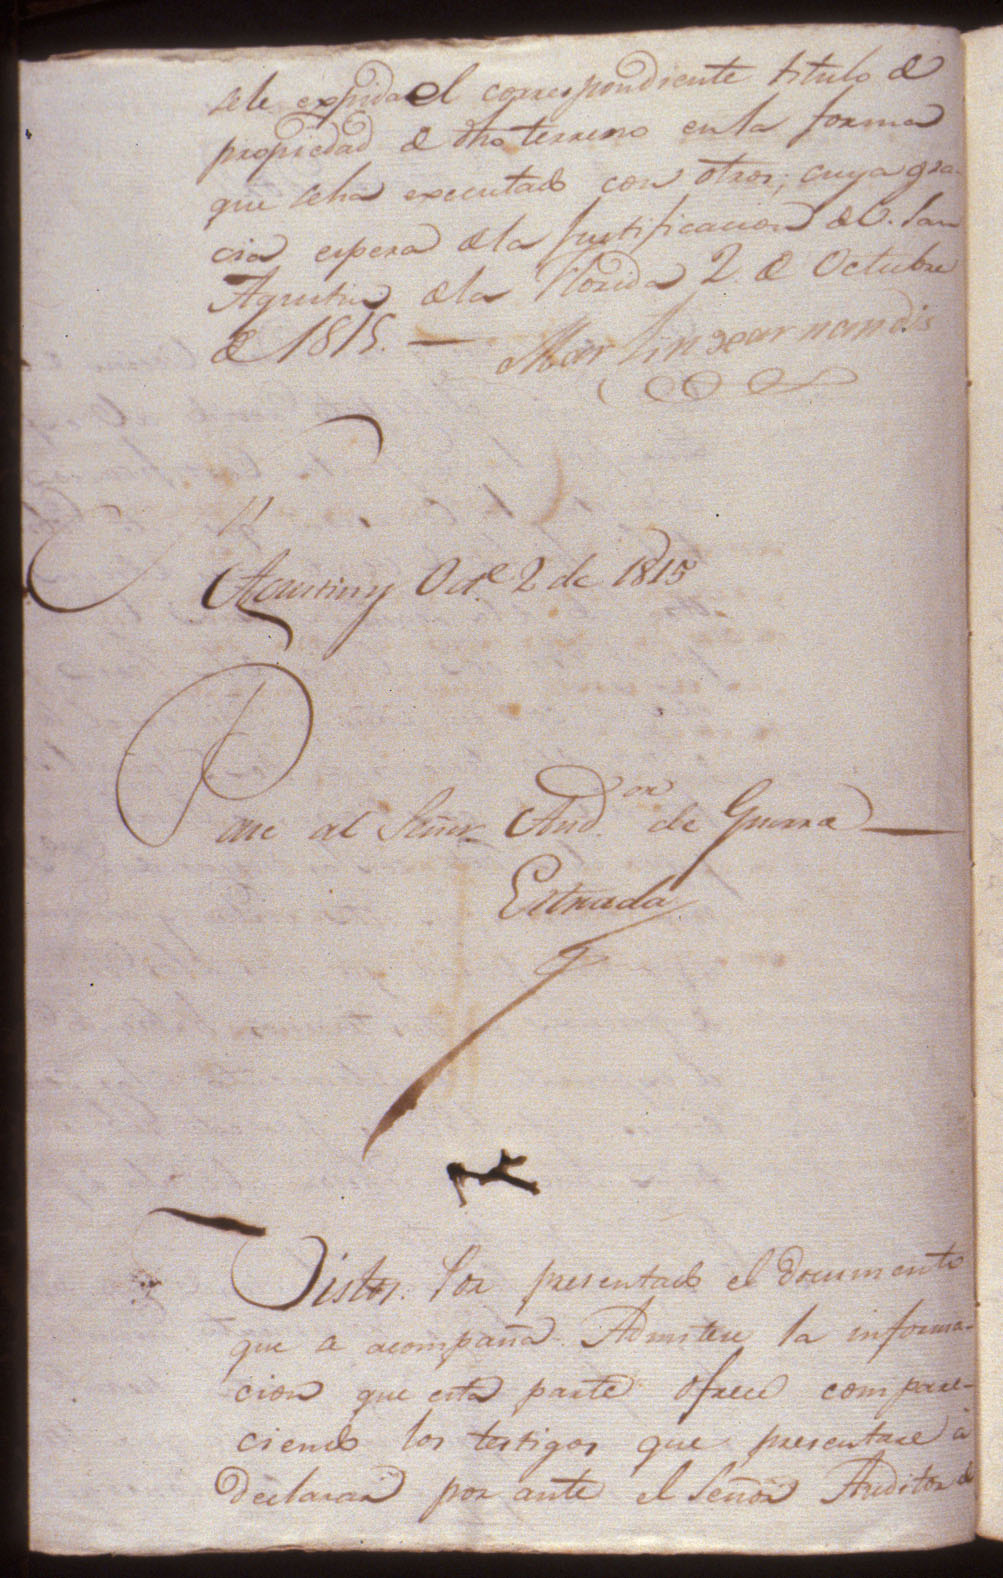 se le expida el correspondiente titulo de
propiedad de dho terreno en la forma
que seha executado con otros; cuya gra-
cia espera dela justificacion de V. San
Agustin dela Florida 2 de Octubre
de 1815. —
Martin Hernandis
Agustin y Octe. 2 de 1815
Pase al Señor Aud.or de Guerra —
Estrada
Vistos: Por presentado el documento
que a acompaña. Admitese la informa-
cion que esta parte ofrece compare-
ciendo los testigos que presentare à
declarar por ante el Señor Auditor de